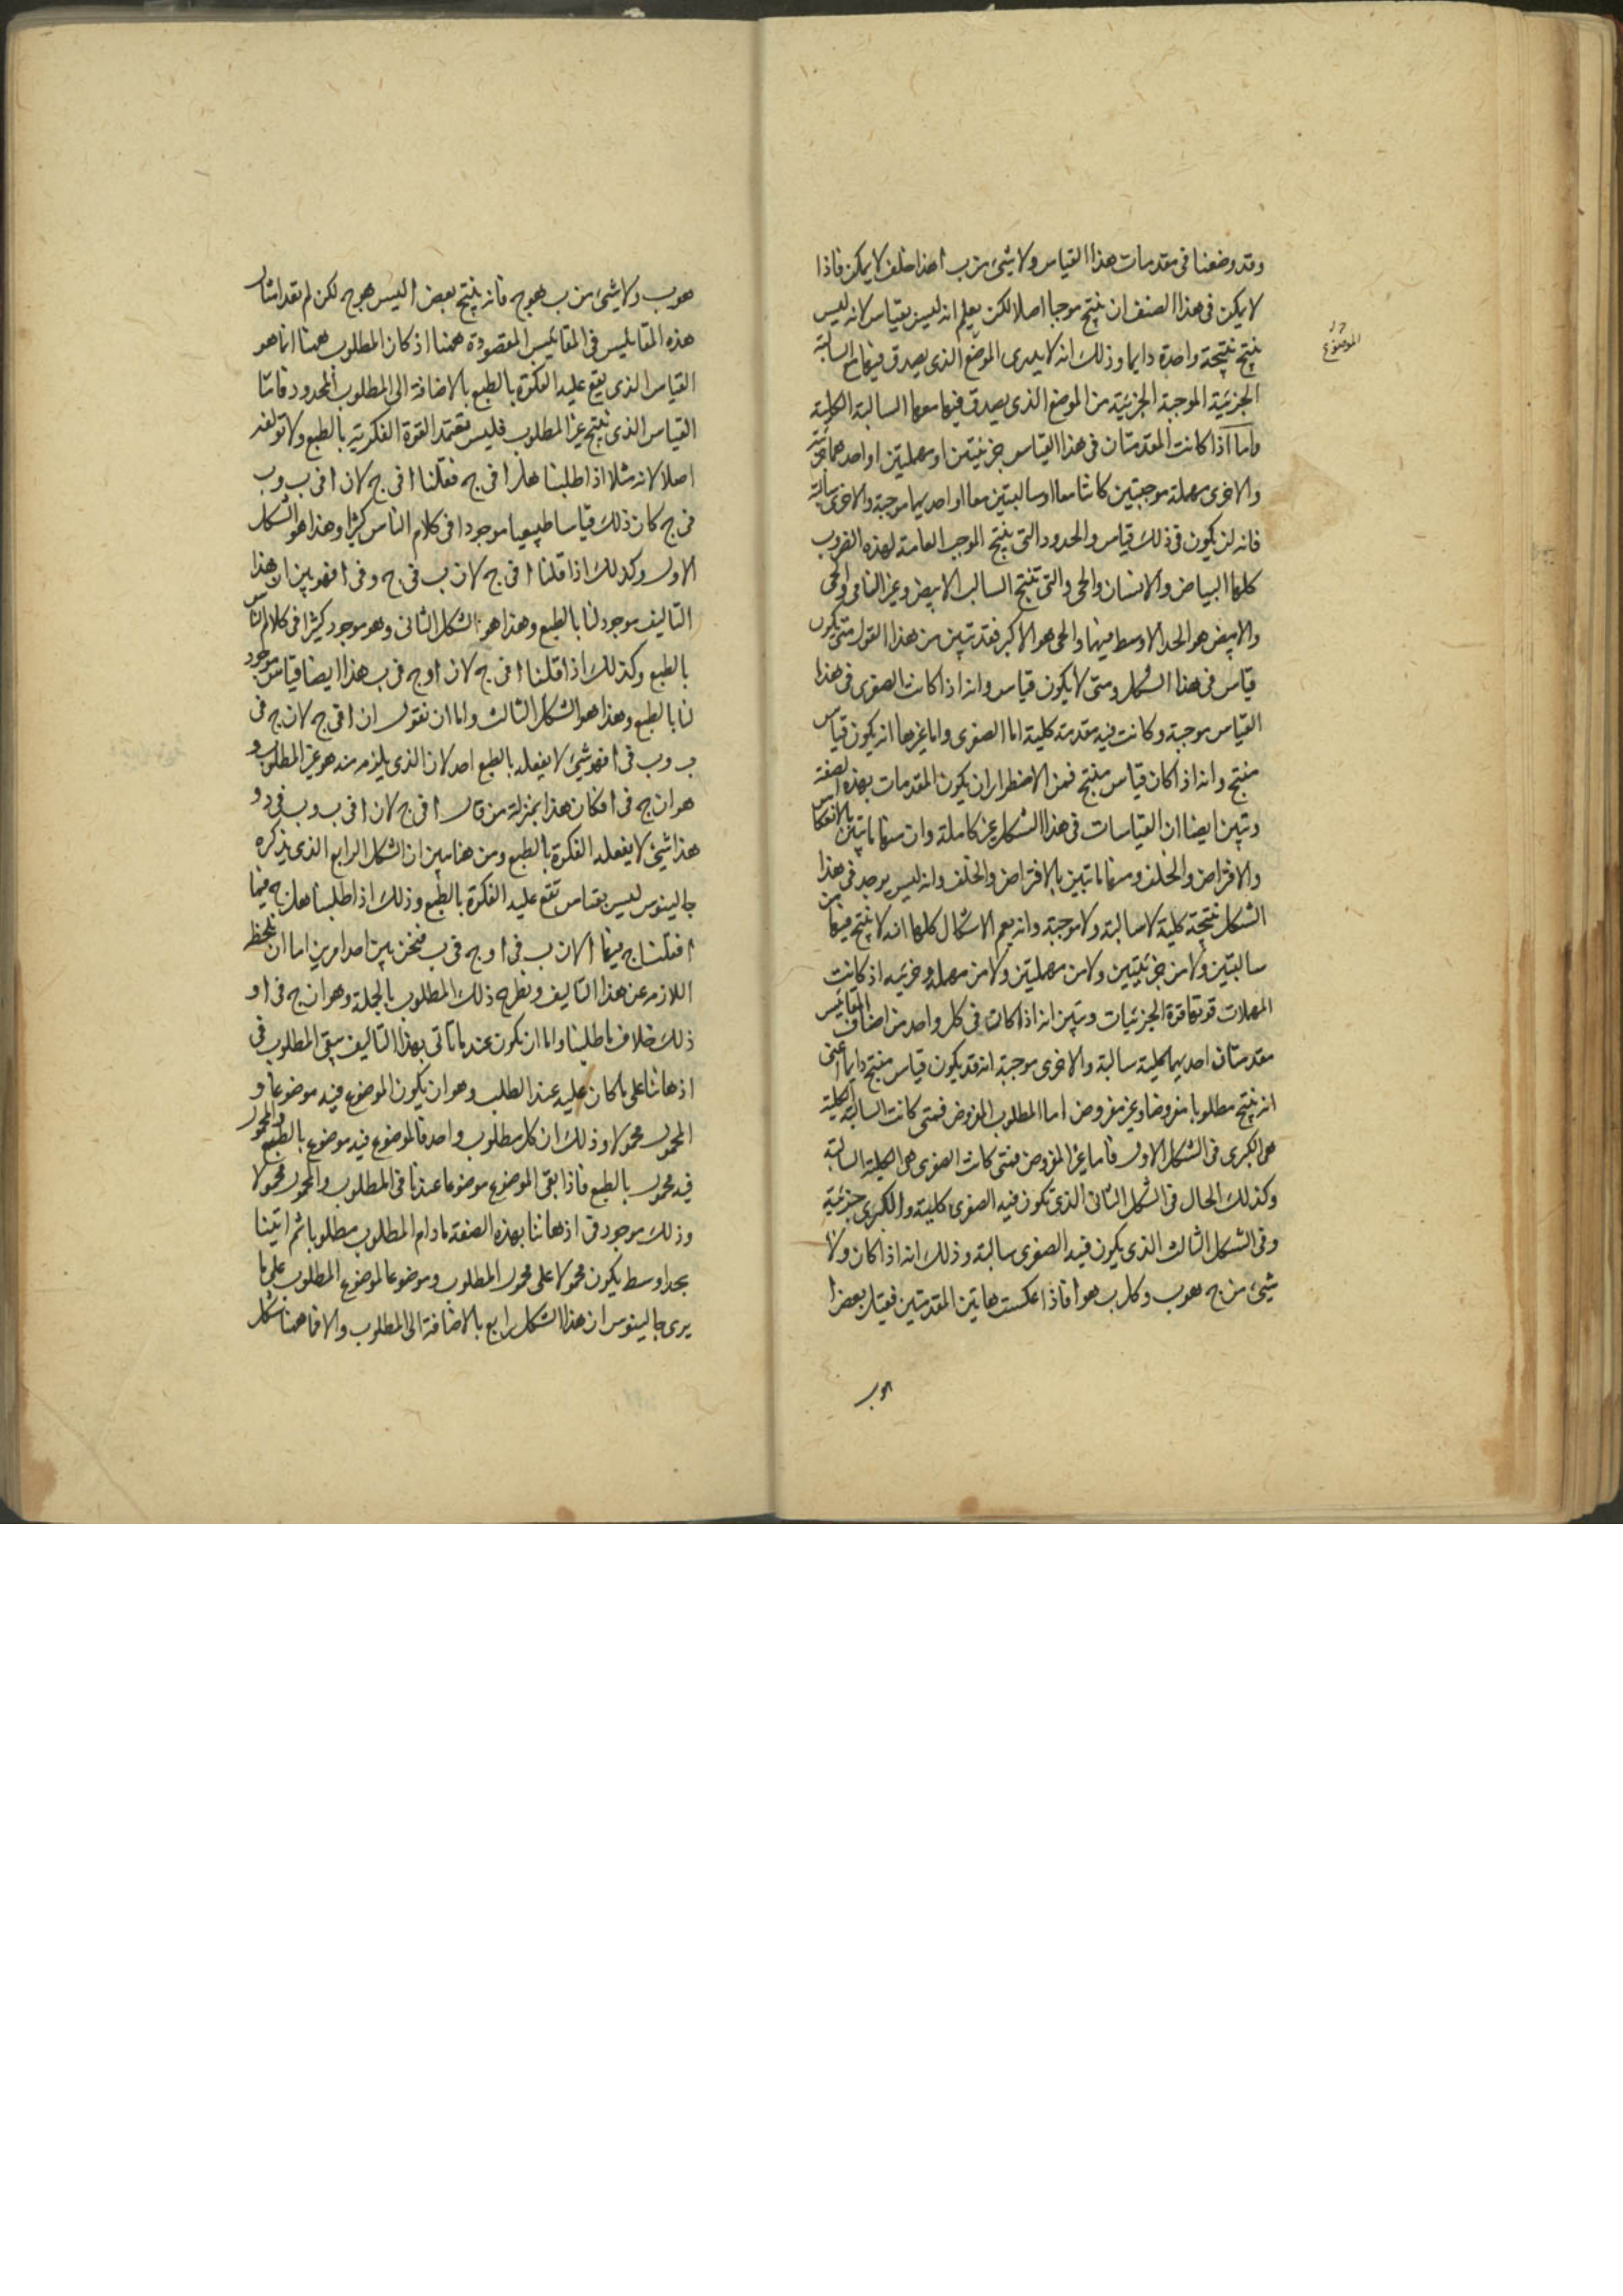 وقد وضعنا فى مقدمات هذا القياس ولا شىء من ب ا هذا خلف لا يمكن فاذا
لا يمكن فى هذا الصنف ان ينتج موجبا اصلا لكن يعلم انه ليس بقياس لانه ليس
ينتج نتيجة واحدة دايما وذلك انه لا يدرى الموضع الذى يصدق فيها مع السالبة
الجزئية الموجبة الجزئية من الموضع الذى يصدق فيها معها السالبة الكلية
واما اذا كانت المقدمتان فى هذا القياس جزئيتين او مهملتين او احدهما جزئية
والاخرى مهملة موجبتين كانتا معا او سالبتين معا او احديهما موجبة والاخرى سالبة
فانه لن يكون فى ذلك قياس والحدود التى ينتج الموجب العامة لهذه الضروب
كلها البياض والانسان والحى والتى تنتج السالب الابيض وغير النامى والحى
والابيض هو الحد الاوسط فيهما والحى هو الاكبر فقد تبين من هذا القول متى يكون
قياس فى هذا الشكل ومتى لا يكون قياس وانه اذا كانت الصغرى فى هذا
القياس موجبة وكانت فيه مقدمة كلية اما الصغرى واما غيرها انه يكون قياس
منتج وانه اذا كان قياس منتج فمن الاضطرار ان يكون المقدمات بهذه الصفة
وتبين ايضا ان القياسات فى هذا الشكل غير كاملة وان منها ما تبين بالانعكاس
والافتراض والخلف ومنها ما تبين بالافتراض والخلف وانه ليس يوجد فى هذا
الشكل نتيجة كلية لا سالبة ولا موجبة وانه يعم الاشكال كلها انه لا ينتج فيها من
سالبتين ولا من جزئيتين ولا من مهملتين ولا من مهملة وجزئية اذ كانت
المهملات قوتها قوة الجزئيات وتبين انه اذا كانت فى كل واحد من اصناف المقاييس
مقدمتان احديهما كلية سالبة والاخرى موجبة انه قد يكون قياس منتج دايما اعنى
انه ينتج مطلوبا مفروضا وغير مفروض اما المطلوب المفروض فمتى كانت السالبة الكلية
هى الكبرى فى الشكل الاول فاما غير المفروض فمتى كانت الصغرى هى الكلية السالبة
وكذلك الحال فى الشكل الثانى الذى تكون فيه الصغرى كلية والكبرى جزئية
وفى الشكل الثالث الذى يكون فيه الصغرى سالبة وذلك انه اذا كان ولا
شىء من ج هو ب وكل ب هو ا فاذا عكست هاتين المقدمتين فقيل بعض ا
هو ب
الموضوع
هو ب ولا شىء من ب هو ج فانه ينتج بعض ا ليس هو ج لكن لم يعد امثال
هذه المقاييس فى المقاييس المقصودة ههنا اذ كان المطلوب ههنا انما هو
القياس الذى يقع عليه الفكرة بالطبع بالاضافة الى المطلوب المحدود فاما
القياس الذى ينتج غير المطلوب فليس تعتمد القوة الفكرية بالطبع ولا تولفه
اصلا لانه مثلا اذا طلبنا هل ا فى ج فقلنا ا فى ج لان ا فى ب و ب
فى ج كان ذلك قياسا طبيعيا موجودا فى كلام الناس كثيرا وهذا هو الشكل
الاول وكذلك اذا قلنا ا فى ج لان ب فى ج و فى ا فهو بين ان هذا
التاليف موجود لنا بالطبع وهذا هو الشكل الثانى وهو موجود كثيرا فى كلام الناس
بالطبع وكذلك اذا قلنا ا فى ج لان ا و ج فى ب هذا ايضا قياس موجود
لنا بالطبع وهذا هو الشكل الثالث واما ان نقول ان ا فى ج لان ج فى
ب و ب فى ا فهو شىء لا يفعله بالطبع احد لان الذى يلزم منه هو غير المطلوب و
هو ان ج فى ا فكان هذا بمنزلة من قال ا فى ج لان ا فى ب و ب فى د و
هذا شىء لا يفعله الفكرة بالطبع ومن هنا يبين ان الشكل الرابع الذى يذكره
جالينوس ليس بقياس تقع عليه الفكرة بالطبع وذلك اذا طلبنا هل ج فيها
ا فقلنا ج فيها ا لان ب فى ا و ج فى ب فنحن بين احد امرين اما ان نلحظ
اللازم عن هذا التاليف ونطرح ذلك المطلوب بالجملة وهو ان ج فى ا و
ذلك خلاف ما طلبنا واما ان نكون عند ما ناتى بهذا التاليف يبقى المطلوب فى
اذهاننا على ما كان عليه عند الطلب وهو ان يكون الموضوع فيه موضوعا و
المحمول محمولا وذلك ان كل مطلوب واحد فالموضوع فيه موضوع بالطبع والمحمول
فيه محمول بالطبع فاذا بقى الموضوع موضوعا عندنا فى المطلوب والمحمول محمولا
وذلك موجود فى اذهاننا بهذه الصفة ما دام المطلوب مطلوبا ثم اتينا
بحد اوسط يكون محمولا على محمول المطلوب وموضوعا لموضوع المطلوب على ما
يرى جالينوس ان هذا الشكل رابع بالاضافة الى المطلوب والا فما ههنا شكل